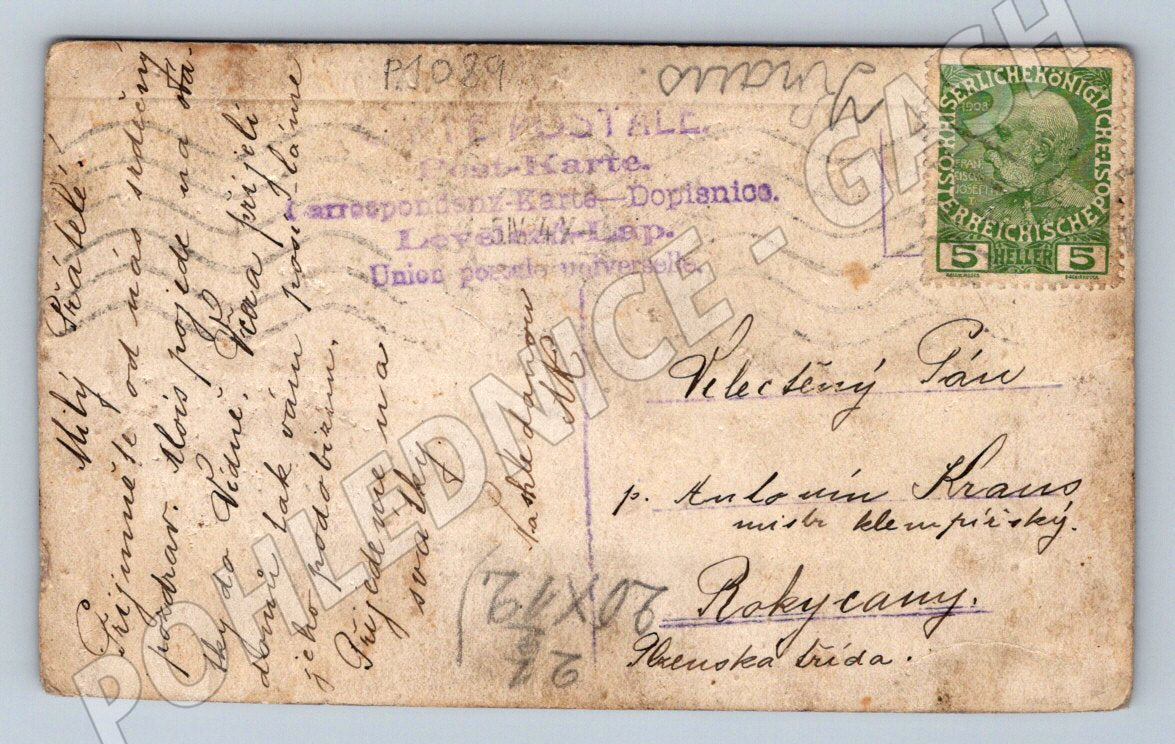 P.1089
Kraus
CARTE POSTALE.
Post-Karte.
Correspondenz-Karte—Dopisnice.
Levelező-Lap.
Union postale universelle.
KAISERLICHE KÖNIGLICHE
ÖSTERREICHISCHE POST
1908
FRAN
CISCUS
JOSEPH
I
5 HELLER 5
Milý Přátelé!
Přijmněte od nás srdečný
pozdrav. Alois pojede na
tky do Vídně.
domů tak vám pose-láme
jeho podobiznu.
Přijedeme na
svatky.
Velectěný Pán
p. Antonín Kraus
mistr klempířský.
Rokycany.
Plzenská třída.
20 X 12
POHLEDNICE - GASH